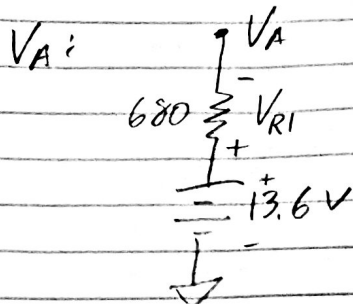 VA: VA
-
680 VR1
+
+
13.6 V
-